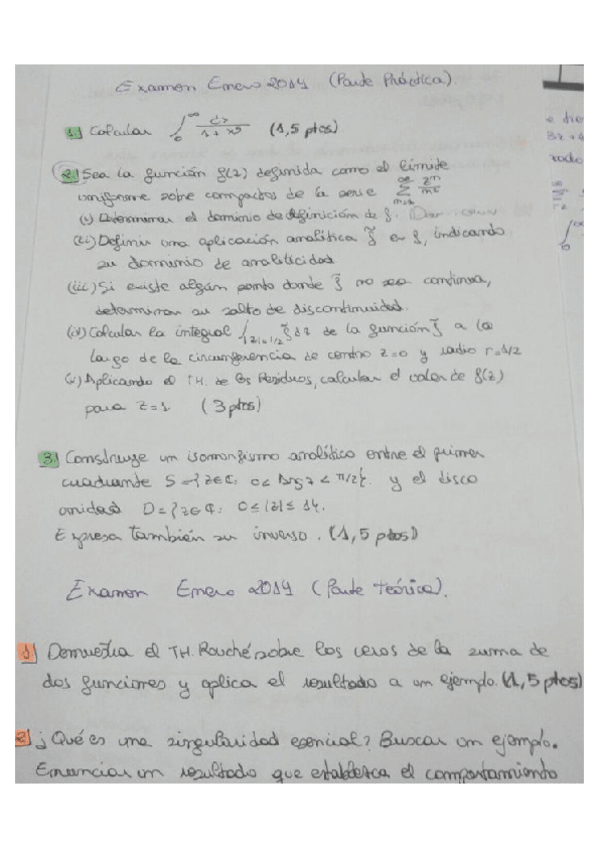 Examen Enero 2014 (Parte Práctica).
1.) Calcular ∫_0^∞ dx/(1+x^5) (1,5 ptos)
2.) Sea la función f(z) definida como el límite
uniforme sobre compactos de la serie
(i) Determinar el dominio de definición de f.
(ii) Definir una aplicación analítica f̃ en f, indicando
su dominio de analiticidad
(iii) Si existe algún punto donde f̃ no sea continua,
determinar su salto de discontinuidad.
(iv) Calcular la integral ∫_{|z|=1/2} f̃ dz de la función f̃ a lo
largo de la circunferencia de centro z=0 y radio r=1/2
(v) Aplicando el TH. de los Residuos, calcular el valor de f(z)
para z=1. (3 ptos)
3.) Construye un isomorfismo analítico entre el primer
cuadrante S={z∈ℂ: 0<Arg z<π/2}. y el disco
unidad D={z∈ℂ: 0≤|z|≤1}.
Expresa también su inverso. (1,5 ptos)
Examen Enero 2014 (Parte teórica).
1) Demuestra el TH. Rouché sobre los ceros de la suma de
dos funciones y aplica el resultado a un ejemplo. (1,5 ptos)
2) ¿Qué es una singularidad esencial? Buscar un ejemplo.
Enunciar un resultado que establezca el comportamiento